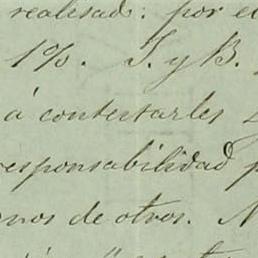 realisad: por el
1%. T. y B.
á contestarles
responsabilidad p
nos de otros. N